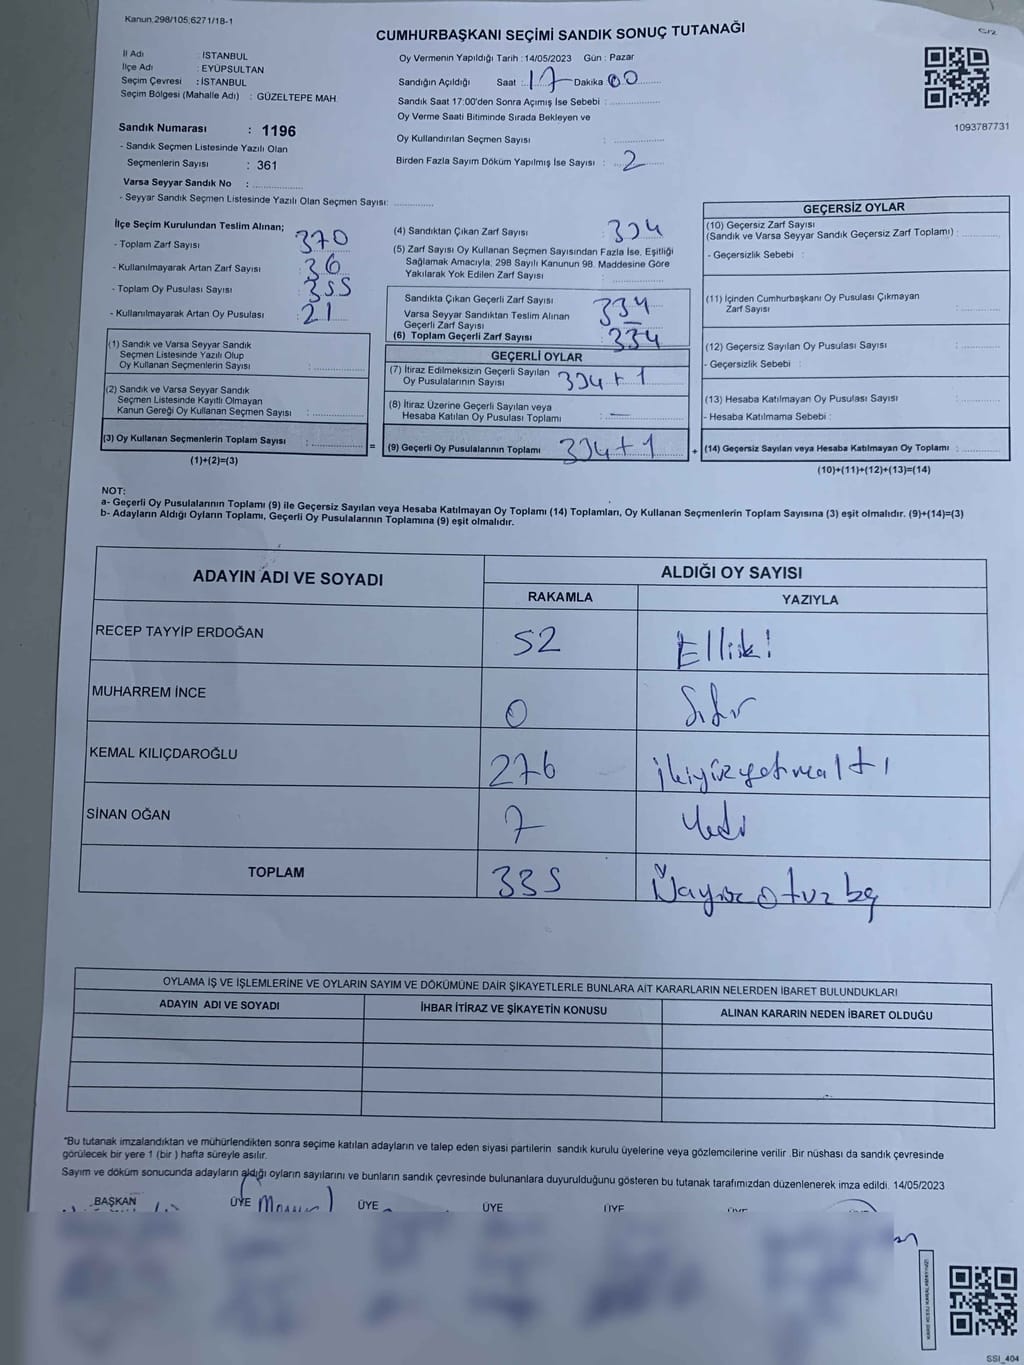 Kanun.298/105;6271/18-1
CUMHURBAŞKANI SEÇİMİ SANDIK SONUÇ TUTANAĞI
İl Adı : İSTANBUL
İlçe Adı : EYÜPSULTAN
Seçim Çevresi : İSTANBUL
Seçim Bölgesi (Mahalle Adı) : GÜZELTEPE MAH.
Sandık Numarası : 1196
- Sandık Seçmen Listesinde Yazılı Olan
Seçmenlerin Sayısı : 361
Varsa Seyyar Sandık No :
- Seyyar Sandık Seçmen Listesinde Yazılı Olan Seçmen Sayısı:
Oy Vermenin Yapıldığı Tarih :14/05/2023 Gün : Pazar
Sandığın Açıldığı Saat : 17 Dakika 00
Sandık Saat 17:00'den Sonra Açılmış İse Sebebi :
Oy Verme Saati Bitiminde Sırada Bekleyen ve
Oy Kullandırılan Seçmen Sayısı :
Birden Fazla Sayım Döküm Yapılmış İse Sayısı : 2
1093787731
İlçe Seçim Kurulundan Teslim Alınan;
- Toplam Zarf Sayısı : 370
- Kullanılmayarak Artan Zarf Sayısı : 36
- Toplam Oy Pusulası Sayısı : 355
- Kullanılmayarak Artan Oy Pusulası : 21
(1) Sandık ve Varsa Seyyar Sandık
Seçmen Listesinde Yazılı Olup
Oy Kullanan Seçmenlerin Sayısı :
(2) Sandık ve Varsa Seyyar Sandık
Seçmen Listesinde Kayıtlı Olmayan
Kanun Gereği Oy Kullanan Seçmen Sayısı :
(3) Oy Kullanan Seçmenlerin Toplam Sayısı : =
(1)+(2)=(3)
(4) Sandıktan Çıkan Zarf Sayısı : 334
(5) Zarf Sayısı Oy Kullanan Seçmen Sayısından Fazla İse, Eşitliği
Sağlamak Amacıyla; 298 Sayılı Kanunun 98. Maddesine Göre
Yakılarak Yok Edilen Zarf Sayısı :
Sandıkta Çıkan Geçerli Zarf Sayısı 334
Varsa Seyyar Sandıktan Teslim Alınan
Geçerli Zarf Sayısı —
(6) Toplam Geçerli Zarf Sayısı : 334
GEÇERLİ OYLAR
(7) İtiraz Edilmeksizin Geçerli Sayılan
Oy Pusulalarının Sayısı : 334+1
(8) İtiraz Üzerine Geçerli Sayılan veya
Hesaba Katılan Oy Pusulası Toplamı : —
(9) Geçerli Oy Pusulalarının Toplamı 334+1 +
GEÇERSİZ OYLAR
(10) Geçersiz Zarf Sayısı
(Sandık ve Varsa Seyyar Sandık Geçersiz Zarf Toplamı) :
- Geçersizlik Sebebi :
(11) İçinden Cumhurbaşkanı Oy Pusulası Çıkmayan
Zarf Sayısı :
(12) Geçersiz Sayılan Oy Pusulası Sayısı :
- Geçersizlik Sebebi :
(13) Hesaba Katılmayan Oy Pusulası Sayısı :
- Hesaba Katılmama Sebebi :
(14) Geçersiz Sayılan veya Hesaba Katılmayan Oy Toplamı :
(10)+(11)+(12)+(13)=(14)
NOT:
a- Geçerli Oy Pusulalarının Toplamı (9) ile Geçersiz Sayılan veya Hesaba Katılmayan Oy Toplamı (14) Toplamları, Oy Kullanan Seçmenlerin Toplam Sayısına (3) eşit olmalıdır. (9)+(14)=(3)
b- Adayların Aldığı Oyların Toplamı, Geçerli Oy Pusulalarının Toplamına (9) eşit olmalıdır.
ADAYIN ADI VE SOYADI ALDIĞI OY SAYISI
RAKAMLA YAZIYLA
RECEP TAYYİP ERDOĞAN 52 Elliiki
MUHARREM İNCE 0 Sıfır
KEMAL KILIÇDAROĞLU 276 ikiyüzyetmişaltı
SİNAN OĞAN 7 Yedi
TOPLAM 335
OYLAMA İŞ VE İŞLEMLERİNE VE OYLARIN SAYIM VE DÖKÜMÜNE DAİR ŞİKAYETLERLE BUNLARA AİT KARARLARIN NELERDEN İBARET BULUNDUKLARI
ADAYIN ADI VE SOYADI İHBAR İTİRAZ VE ŞİKAYETİN KONUSU ALINAN KARARIN NEDEN İBARET OLDUĞU
*Bu tutanak imzalandıktan ve mühürlendikten sonra seçime katılan adayların ve talep eden siyasi partilerin sandık kurulu üyelerine veya gözlemcilerine verilir. Bir nüshası da sandık çevresinde
görülecek bir yere 1 (bir) hafta süreyle asılır.
Sayım ve döküm sonucunda adayların aldığı oyların sayılarını ve bunların sandık çevresinde bulunanlara duyurulduğunu gösteren bu tutanak tarafımızdan düzenlenerek imza edildi. 14/05/2023
BAŞKAN ÜYE ÜYE ÜYE ÜYE ÜYE
SSI_404